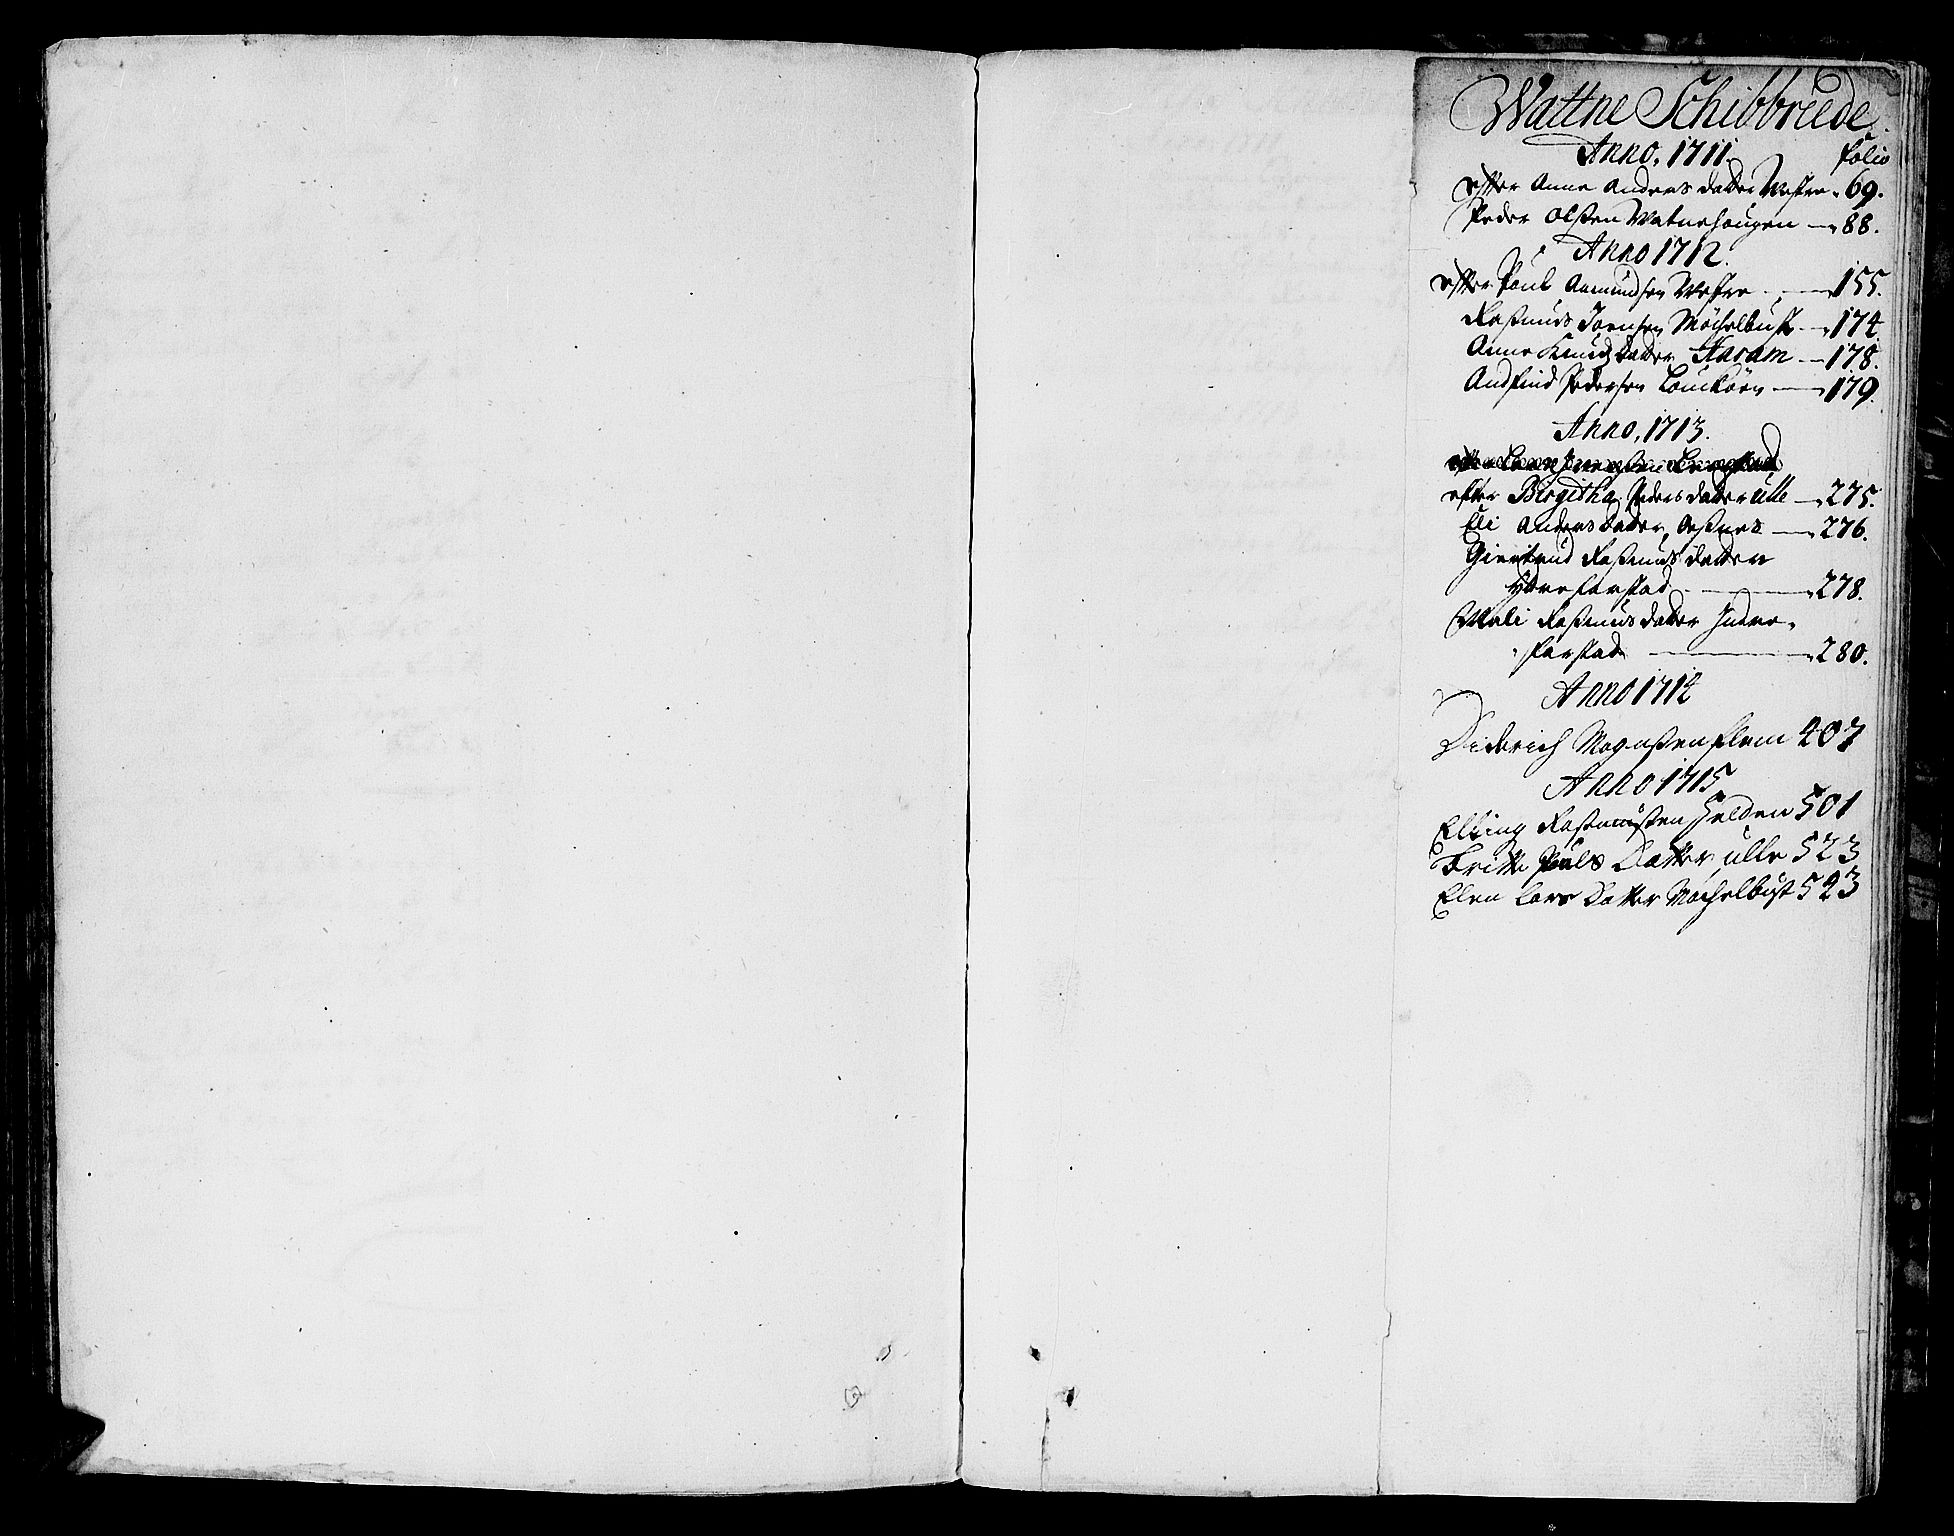 Wattne Schibbrede
Anno, 1711. folio
efter Anne Anders datter Westre 69.
Peder Olsen Watnehougen 88.
Anno 1712.
efter Poul Amundsen Westre 155.
Rasmus Joensen Möchelbust 174
Anne Knudsdatter Haram 178.
Andfind Pedersen 179.
Anno, 1713.
efter Birgitha Pedersdatter Ulle 275.
Eli Andersdatter 276.
Giertrud Rasmusdatter
Ydre farstad 278.
Mali Rasmusdatter Indre
farstad 280.
Anno 1714
Diderich Mogensen flem 407
Anno 1715
Elling Rasmussen Helden 501
Poulsdatter Ulle 523
Elen Lars Datter Möchelbust 543